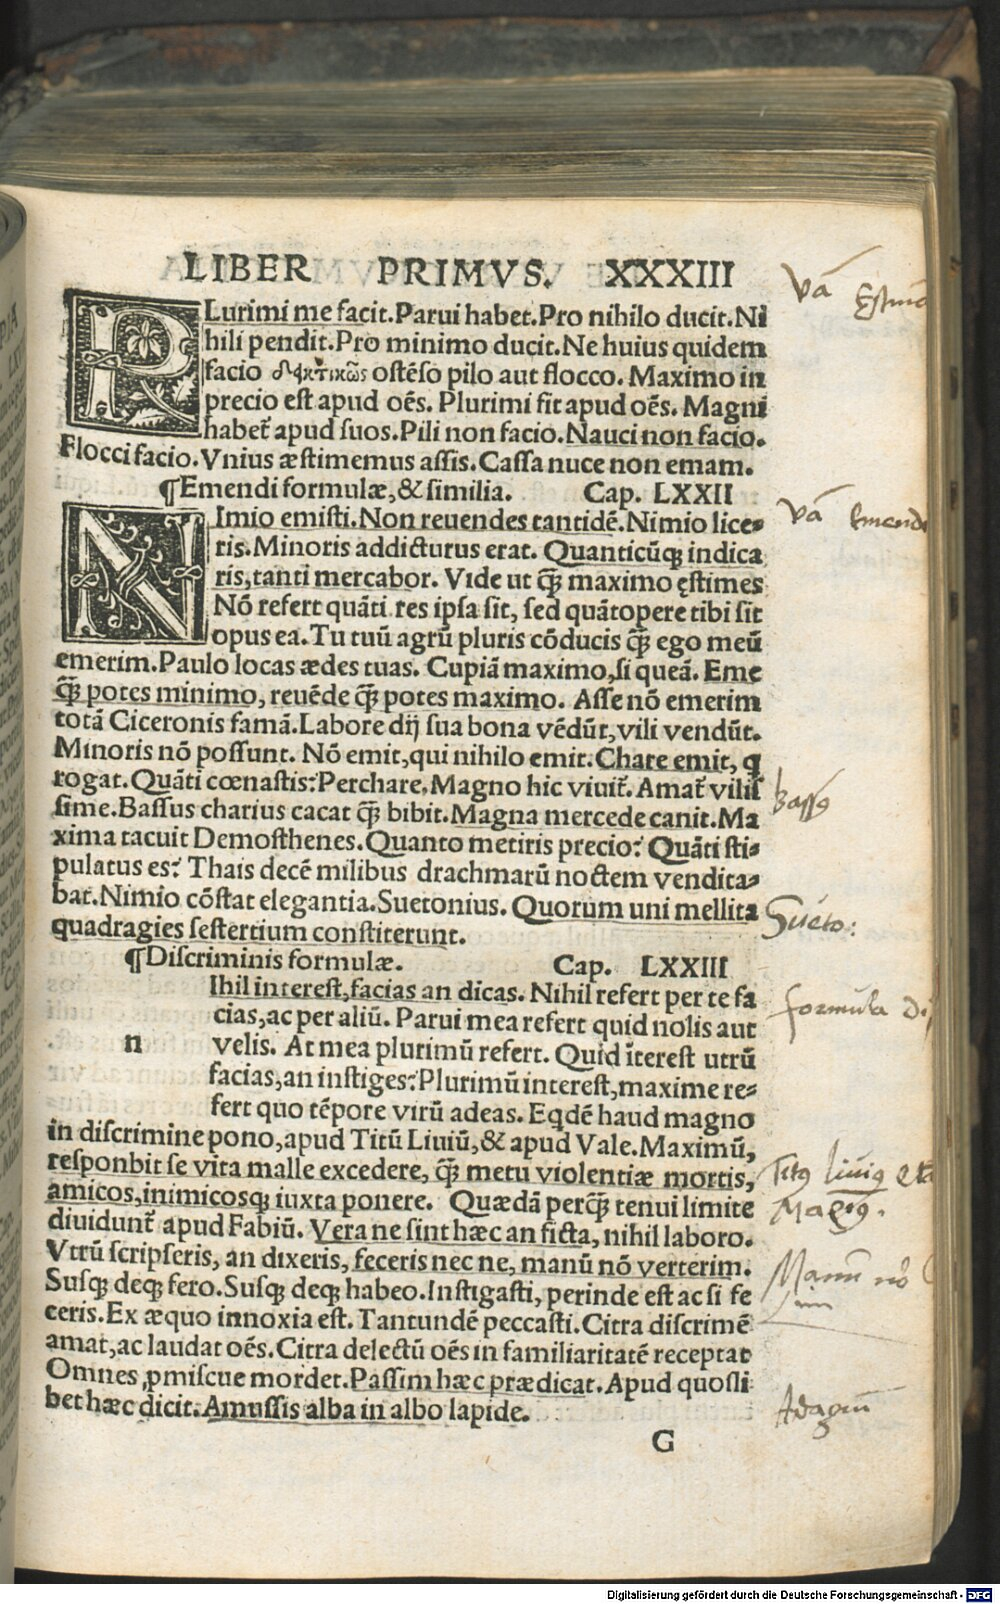 LIBER PRIMVS. XXXIII
PLurimi me facit. Parui habet. Pro nihilo ducit. Ni
hili pendit. Pro minimo ducit. Ne huius quidem
facio ostẽso pilo aut flocco. Maximo in
precio est apud oẽs. Plurimi fit apud oẽs. Magni
habet᷑ apud suos. Pili non facio. Nauci non facio.
Flocci facio. Vnius æstimemus assis. Cassa nuce non emam.
¶Emendi formulæ, & similia. Cap. LXXII
NImio emisti. Non reuendes tantidẽ. Nimio lice⸗
ris. Minoris addicturus erat. Quanticũqꝫ indica
ris, tanti mercabor. Vide ut q̃ꝫ maximo ęstimes
Nõ refert quãti res ipsa sit, sed quãtopere tibi sit
opus ea. Tu tuũ agrũ pluris cõducis q̃ꝫ ego meũ
emerim. Paulo locas ædes tuas. Cupiã maximo, si queã. Eme
q̃ꝫ potes minimo, reuẽde q̃ꝫ potes maximo. Asse nõ emerim
totã Ciceronis famã. Labore dij sua bona vẽdũt, vili vendũt.
Minoris nõ possunt. Nõ emit, qui nihilo emit. Chare emit, q
rogat. Quãti cœnastis? Perchare. Magno hic viuit᷑. Amat᷑ vilis
sime. Bassus charius cacat q̃ꝫ bibit. Magna mercede canit. Ma
xima tacuit Demosthenes. Quanto metiris precio? Quãti sti⸗
pulatus es? Thais decẽ milibus drachmarũ noctem vendita⸗
bat. Nimio cõstat elegantia. Suetonius. Quorum uni mellita
quadragies sestertium constiterunt.
¶Discriminis formulæ. Cap. LXXIII
Ihil interest, facias an dicas. Nihil refert per te fa
cias, ac per aliũ. Parui mea refert quid nolis aut
n velis. At mea plurimũ refert. Quid ĩterest utrũ
facias, an instiges? Plurimũ interest, maxime re⸗
fert quo tẽpore virũ adeas. Eqdẽ haud magno
in discrimine pono, apud Titũ Liuiũ, & apud Vale. Maximũ,
responbit se vita malle excedere, q̃ꝫ metu violentiæ mortis,
amicos, inimicosqꝫ iuxta ponere. Quædã perq̃ꝫ tenui limite
diuidunt᷑ apud Fabiũ. Vera ne sint hæc an ficta, nihil laboro.
Vtrũ scripseris, an dixeris, feceris nec ne, manũ nõ verterim.
Susqꝫ deqꝫ fero. Susqꝫ deqꝫ habeo. Instigasti, perinde est ac si fe
ceris. Ex æquo innoxia est. Tantundẽ peccasti. Citra discrimẽ
amat, ac laudat oẽs. Citra delectũ oẽs in familiaritatẽ receptat
Omnes ꝓmiscue mordet. Passim hæc prædicat. Apud quosli
bet hæc dicit. Amussis alba in albo lapide.
G
Vã
Vã Emend
Bassꝰ
Sueto:
formula
Titꝰ liuiꝰ
Manũ nõ
Adagiũ